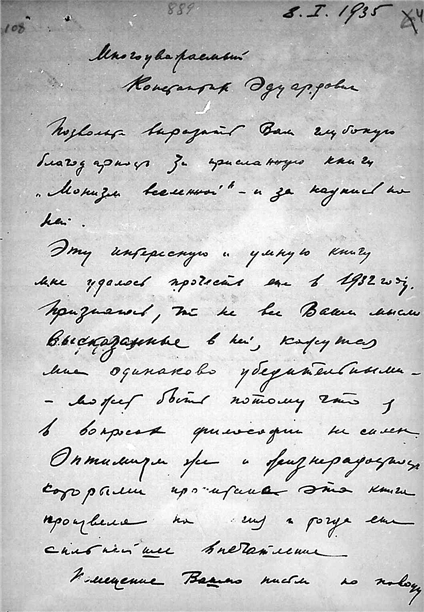 889
8.I.1935
108
64
Многоуважаемый
Константин Эдуардович
Позвольте выразить Вам глубокую
благодарность за присланную книгу
„Монизм вселенной" – и за надпись на
ней.
Эту интересную и умную книгу
мне удалось прочесть еще в 1932 году.
Признаюсь, что не все Ваши мысли
высказанные в ней, кажутся
мне одинаково убедительными –
– может быть потому что я
в вопросах философии не силен.
Оптимизм же и жизнерадостность
которыми пропитана эта книга
произвела на и тогда еще
сильнейшее впечатление
Ваше письмо по поводу